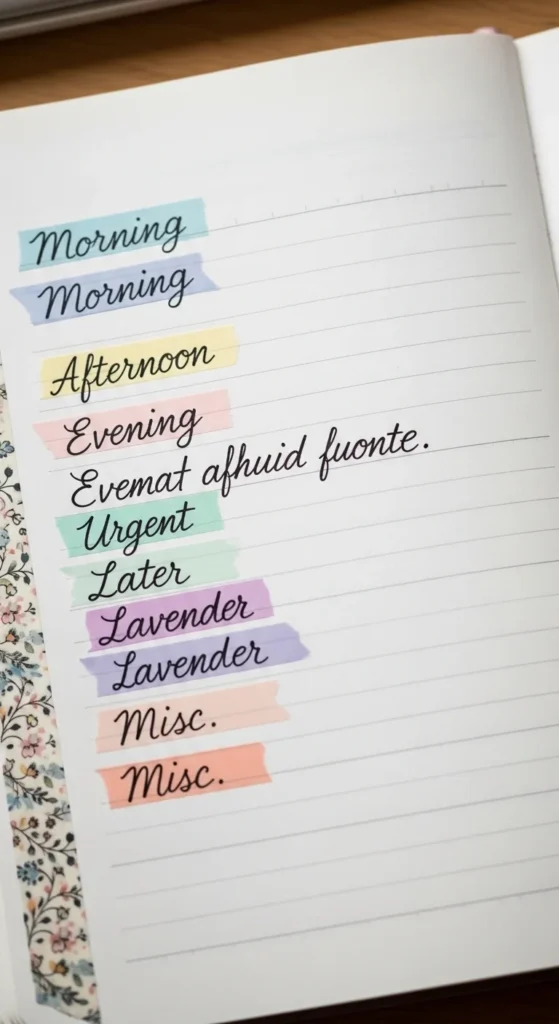 Morning
Morning
Afternoon
Evening
Evemat afhuid fuonte.
Urgent
Later
Lavender
Lavender
Misc.
Misc.